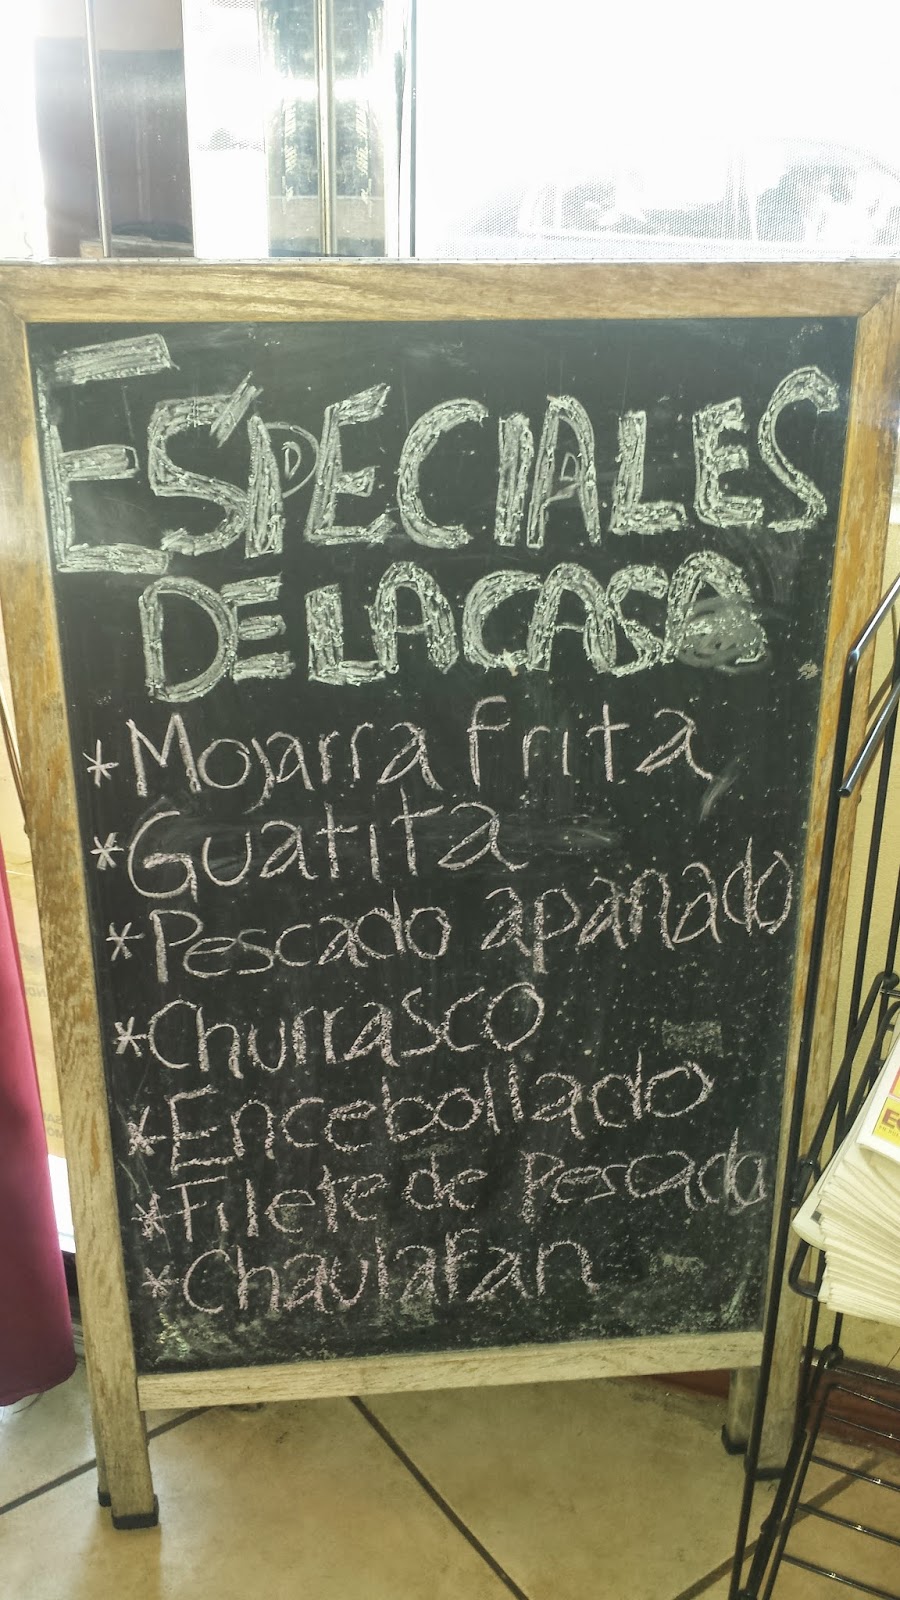 ESPECIALES
DE LA CASA
* Mojarra frita
* Guatita
* Pescado apanado
* Churrasco
* Encebollado
* Filete de pescado
* Chaulafan